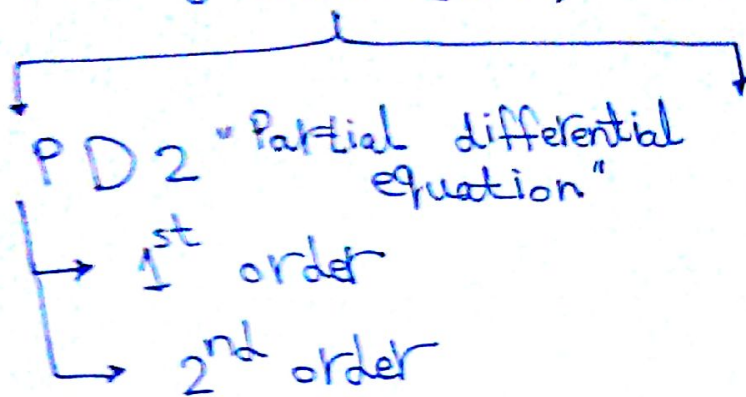 PD2 "Partial differential
equation"
1st order
2nd order